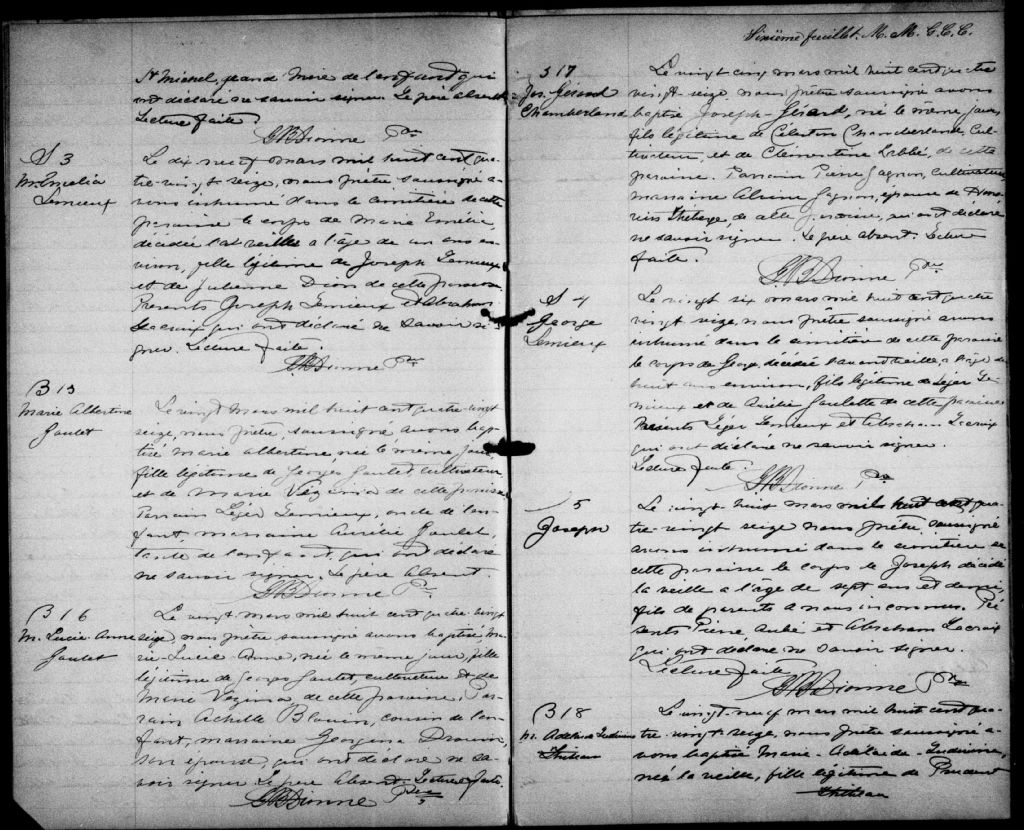 St Michel, grand mère de l'enfant qui
ont déclaré ne savoir signer. Le père absent
Lecture faite.
GBDionne Ptre
S 3
M. Emelia
Lemieux
Le dix neuf mars mil huit cent qua-
tre-vingt seize, nous prêtre soussigné a-
vons inhumé dans le cimetière de cette
paroisse le corps de Marie Emélie,
décédée la veille a l'âge de un ans en-
viron, fille légitime de Joseph Lemieux
et de Julienne Dion de cette paroisse
Presents Joseph Lemieux et Abraham
Lacroix qui ont déclaré ne savoir si-
gner. Lecture faite.
GBDionne Ptre
B 15
Marie Albertine
Goulet
Le vingt mars mil huit cent quatre-vingt
seize, nous prêtre, soussigné avons bap-
tisé Marie Albertine, née le même jour,
fille légitime de Georges Goulet cultivateur
et de Marie Vézina de cette paroisse
Parrain Léger Lemieux, oncle de l'en-
fant, marraine Aurélie Goulet,
tante de l'enfant, qui ont déclaré
ne savoir signer. Le père absent.
GBDionne Ptre
B 16
M. Lucie-Anne
Goulet
Le vingt mars mil huit cent quatre-vingt
seize, nous prêtre soussigné avons baptisé Ma-
rie-Lucie-Anne, née le même jour, fille
légitime de Georges Goulet, cultivateur et de
Marie Vézina de cette paroisse. Par-
rain Achille Blouin, cousin de l'en-
fant, marraine Georgina Drouin,
son épouse, qui ont déclaré ne sa-
voir signer Le père absent Lecture faite.
GBDionne Ptre
Sixième feuillet. M. M. C. C. C.
B 17
Jos. Gérard
Chamberland
Le vingt cinq mars mil huit cent quatre
vingt-seize, nous prêtre soussigné avons
baptisé Joseph-Gérard, né le même jour
fils légitime de Célestin Chamberland, cul-
tivateur, et de Clémentine Labbé, de cette
paroisse. Parrain Pierre Gagnon, cultivateur
marraine Gagnon, épouse de
Theberge de cette paroisse, qui ont déclaré
ne savoir signer. Le père absent. Lecture
faite.
GBDionne Ptre
S 4
George
Lemieux
Le vingt six mars mil huit cent quatre
vingt seize, nous prêtre soussigné avons
inhumé dans le cimetière de cette paroisse
le corps de George, décédé l'avant veille, a l'âge de
huit ans environ, fils légitime de Léger Le-
mieux et de Aurélie Goulette de cette paroisse
Présents Léger Lemieux et Abraham Lacroix
qui ont déclaré ne savoir signer.
Lecture faite.
GBDionne Ptre
5
Joseph
Le vingt huit mars mil huit cent qua-
tre-vingt seize nous prêtre soussigné
avons inhumé dans le cimetière de
cette paroisse le corps de Joseph décédé
la veille a l'âge de sept ans et demi,
fils de parents a nous inconnus. Pré-
sents Pierre Aubé et Abraham Lacroix
qui ont déclaré ne savoir signer.
Lecture faite
GBDionne Ptre
B 18
M. Adelaide
Thibeau
Le vingt-neuf mars mil huit cent qua-
tre-vingt seize, nous prêtre soussigné a-
vons baptisé Marie-Adelaide
née la veille, fille légitime de Prudent
Thibeau